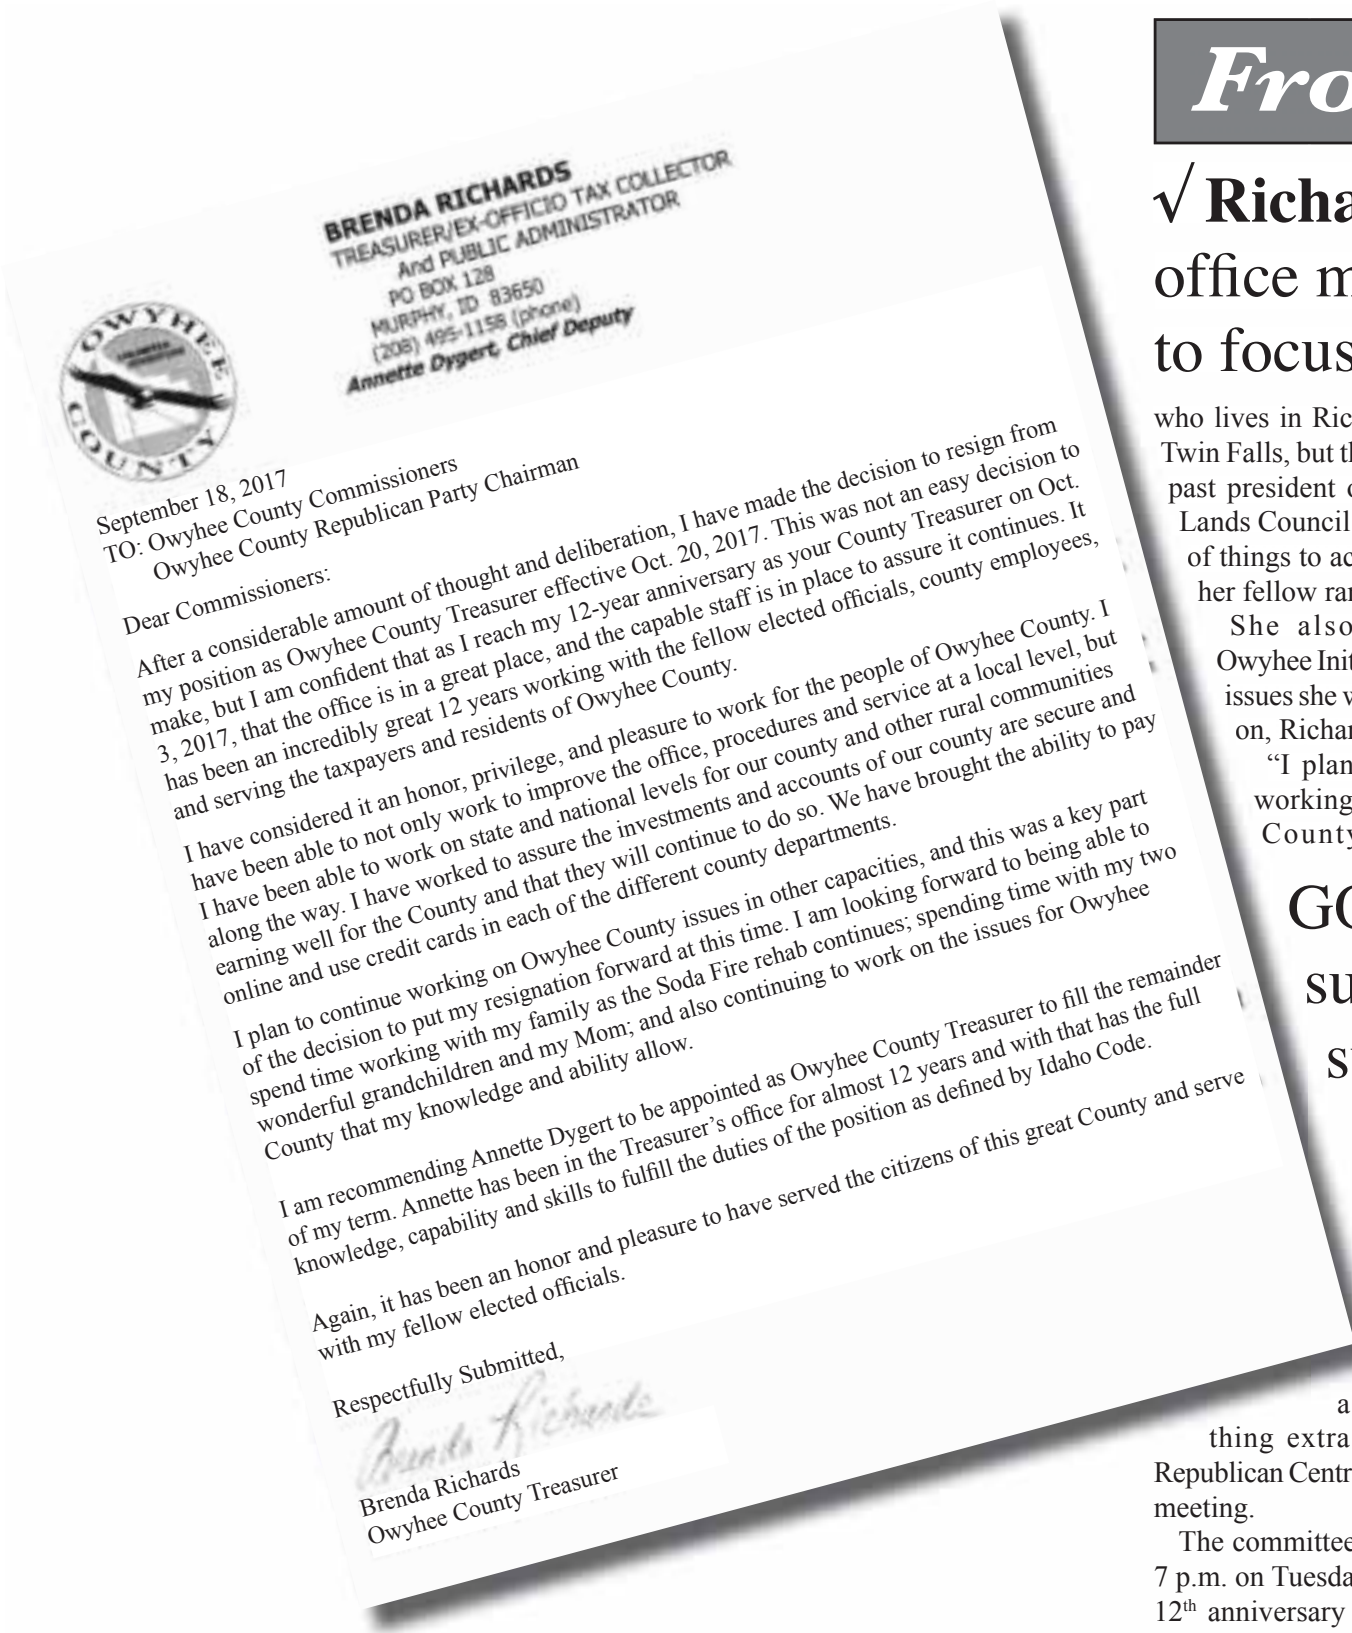 BRENDA RICHARDS
TREASURER/EX-OFFICIO TAX COLLECTOR
And PUBLIC ADMINISTRATOR
PO BOX 128
MURPHY, ID 83650
(208) 495-1158 (phone)
Annette Dygert, Chief Deputy
OWYHEE
COUNTY
September 18, 2017
TO: Owyhee County Commissioners
Owyhee County Republican Party Chairman
Dear Commissioners:
After a considerable amount of thought and deliberation, I have made the decision to resign from
my position as Owyhee County Treasurer effective Oct. 20, 2017. This was not an easy decision to
make, but I am confident that as I reach my 12-year anniversary as your County Treasurer on Oct.
3, 2017, that the office is in a great place, and the capable staff is in place to assure it continues. It
has been an incredibly great 12 years working with the fellow elected officials, county employees,
and serving the taxpayers and residents of Owyhee County.
I have considered it an honor, privilege, and pleasure to work for the people of Owyhee County. I
have been able to not only work to improve the office, procedures and service at a local level, but
I have been able to work on state and national levels for our county and other rural communities
along the way. I have worked to assure the investments and accounts of our county are secure and
earning well for the County and that they will continue to do so. We have brought the ability to pay
online and use credit cards in each of the different county departments.
I plan to continue working on Owyhee County issues in other capacities, and this was a key part
of the decision to put my resignation forward at this time. I am looking forward to being able to
spend time working with my family as the Soda Fire rehab continues; spending time with my two
wonderful grandchildren and my Mom; and also continuing to work on the issues for Owyhee
County that my knowledge and ability allow.
I am recommending Annette Dygert to be appointed as Owyhee County Treasurer to fill the remainder
of my term. Annette has been in the Treasurer's office for almost 12 years and with that has the full
knowledge, capability and skills to fulfill the duties of the position as defined by Idaho Code.
Again, it has been an honor and pleasure to have served the citizens of this great County and serve
with my fellow elected officials.
Respectfully Submitted,
Brenda Richards
Brenda Richards
Owyhee County Treasurer
Fro
√ Richa
office m
to focus
who lives in Ric
Twin Falls, but th
past president o
Lands Council
of things to ac
her fellow ran
She also
Owyhee Init
issues she w
on, Richar
“I plan
working
County
GO
su
s
a
thing extra
Republican Centr
meeting.
The committee
7 p.m. on Tuesda
12th anniversary